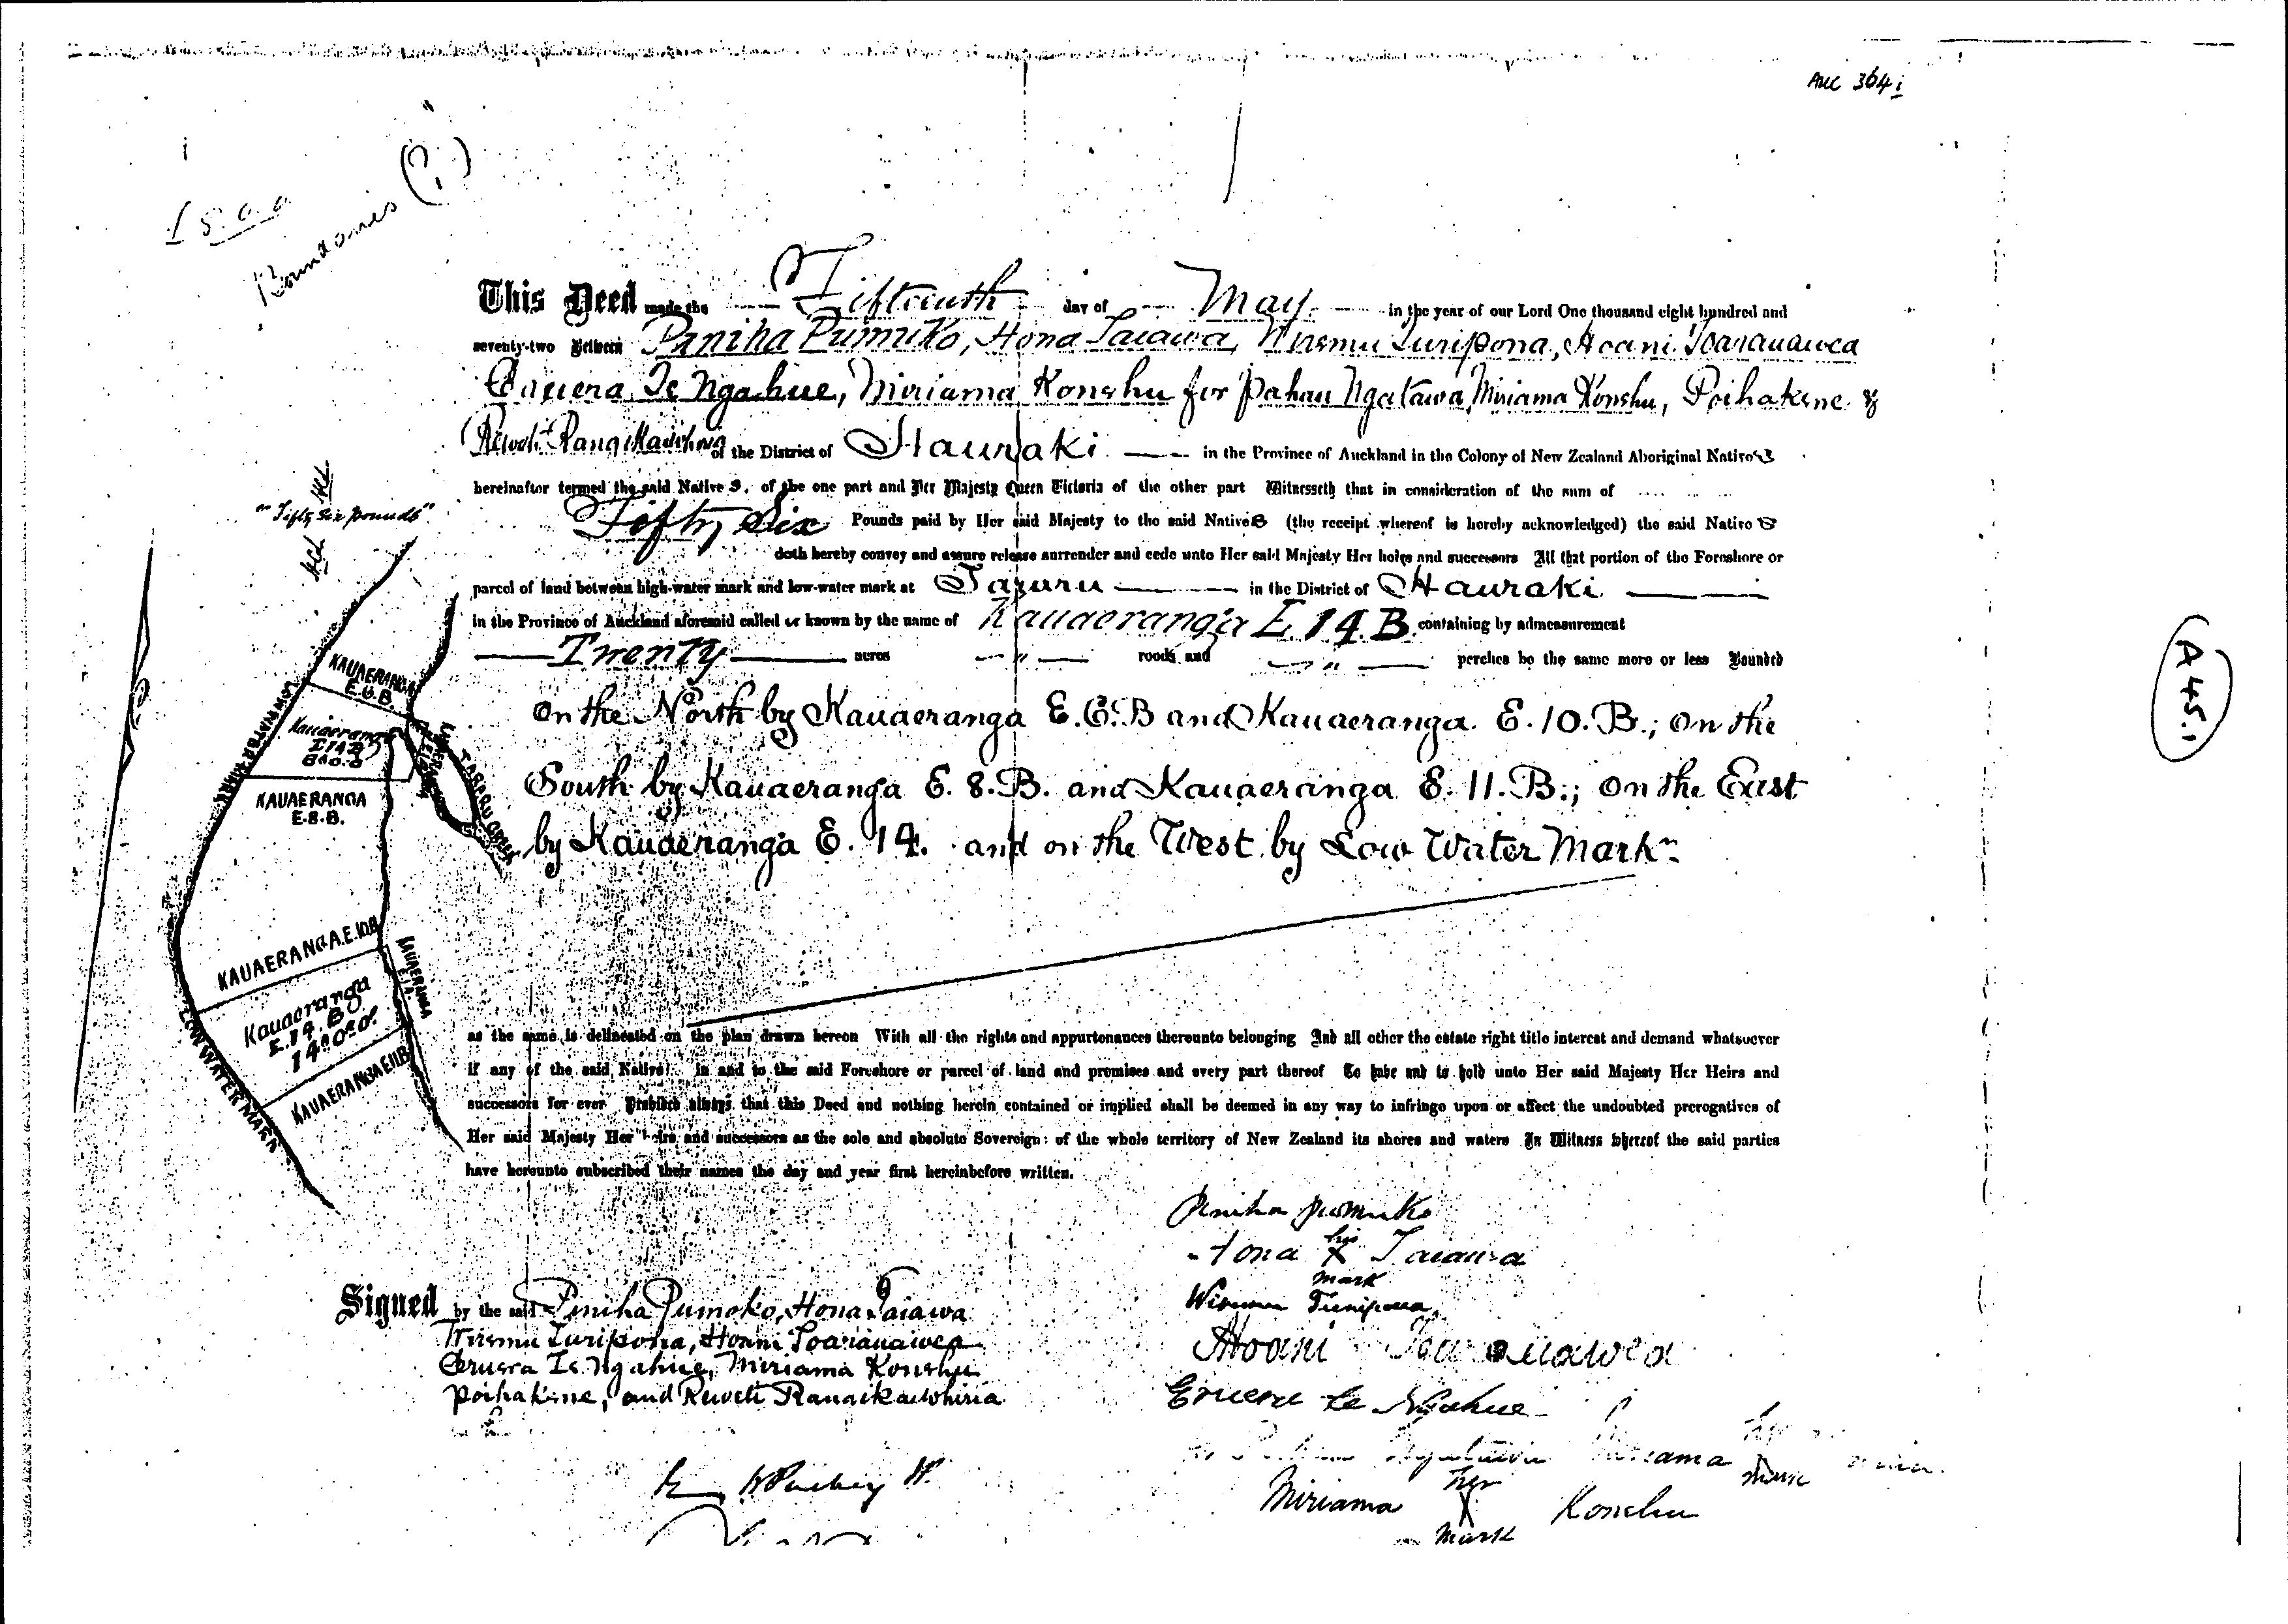 AUC 364 i
£ 8.0.0
Boundaries (?)
This Deed made the Fifteenth day of May in the year of our Lord One thousand eight hundred and
seventy-two Between Peniha Pumuko, Hona Taiawa, Wiremu Turipona, Hoani Toarauawea
Eruera Te Ngahue, Miriama Konehu for Pahau Ngatawa, Miriama Konehu, Poihakene &
Reweti Rangikaiwhiria of the District of Hauraki in the Province of Auckland in the Colony of New Zealand Aboriginal Natives
hereinafter termed the said Natives. of the one part and Her Majesty Queen Victoria of the other part Witnesseth that in consideration of the sum of
"Fifty six pounds"
Fifty Six Pounds paid by Her said Majesty to the said Natives (the receipt whereof is hereby acknowledged) the said Natives
doth hereby convey and assure release surrender and cede unto Her said Majesty Her heirs and successors All that portion of the Foreshore or
parcel of land between high-water mark and low-water mark at Tararu in the District of Hauraki
in the Province of Auckland aforesaid called or known by the name of Kauaeranga E. 14. B. containing by admeasurement
Twenty acres " roods and " perches be the same more or less Bounded
On the North by Kauaeranga E.6.B and Kauaeranga E.10.B.; on the
South by Kauaeranga E.8.B. and Kauaeranga E.11.B.; on the East
by Kauaeranga E.14. and on the West by Low Water Mark
as the same is delineated on the plan drawn hereon With all the rights and appurtenances thereunto belonging And all other the estate right title interest and demand whatsoever
if any of the said Natives in and to the said Foreshore or parcel of land and premises and every part thereof To have and to hold unto Her said Majesty Her Heirs and
successors for ever Provided always that this Deed and nothing herein contained or implied shall be deemed in any way to infringe upon or affect the undoubted prerogatives of
Her said Majesty Her heirs and successors as the sole and absolute Sovereign of the whole territory of New Zealand its shores and waters In Witness whereof the said parties
have hereunto subscribed their names the day and year first hereinbefore written.
KAUAERANGA
E.6.B.
LOW WATER MARK
Kauaeranga
E 14 B
6.0.0
KAUAERANGA
E.14
TARARU CREEK
KAUAERANGA
E.8.B.
KAUAERANGA.E.10B
KAUAERANGA
E.14
Kauaeranga
E.14.B
14.0.0.
KAUAERANGA E11B
LOW WATER MARK
A 45.1
Peniha Pumuko
Hona his X mark Taiawa
Wiremu Turipona
Hoani Toarauawea
Eruera te Ngahue
Miriama her mark
Miriama her X mark Konehu
Signed by the said Peniha Pumoko, Hona Taiawa
Wiremu Turipona, Hoani Toarauawea
Eruera Te Ngahue, Miriama Konehu
Poihakene, and Reweti Rangikaiwhiria
W Puckey